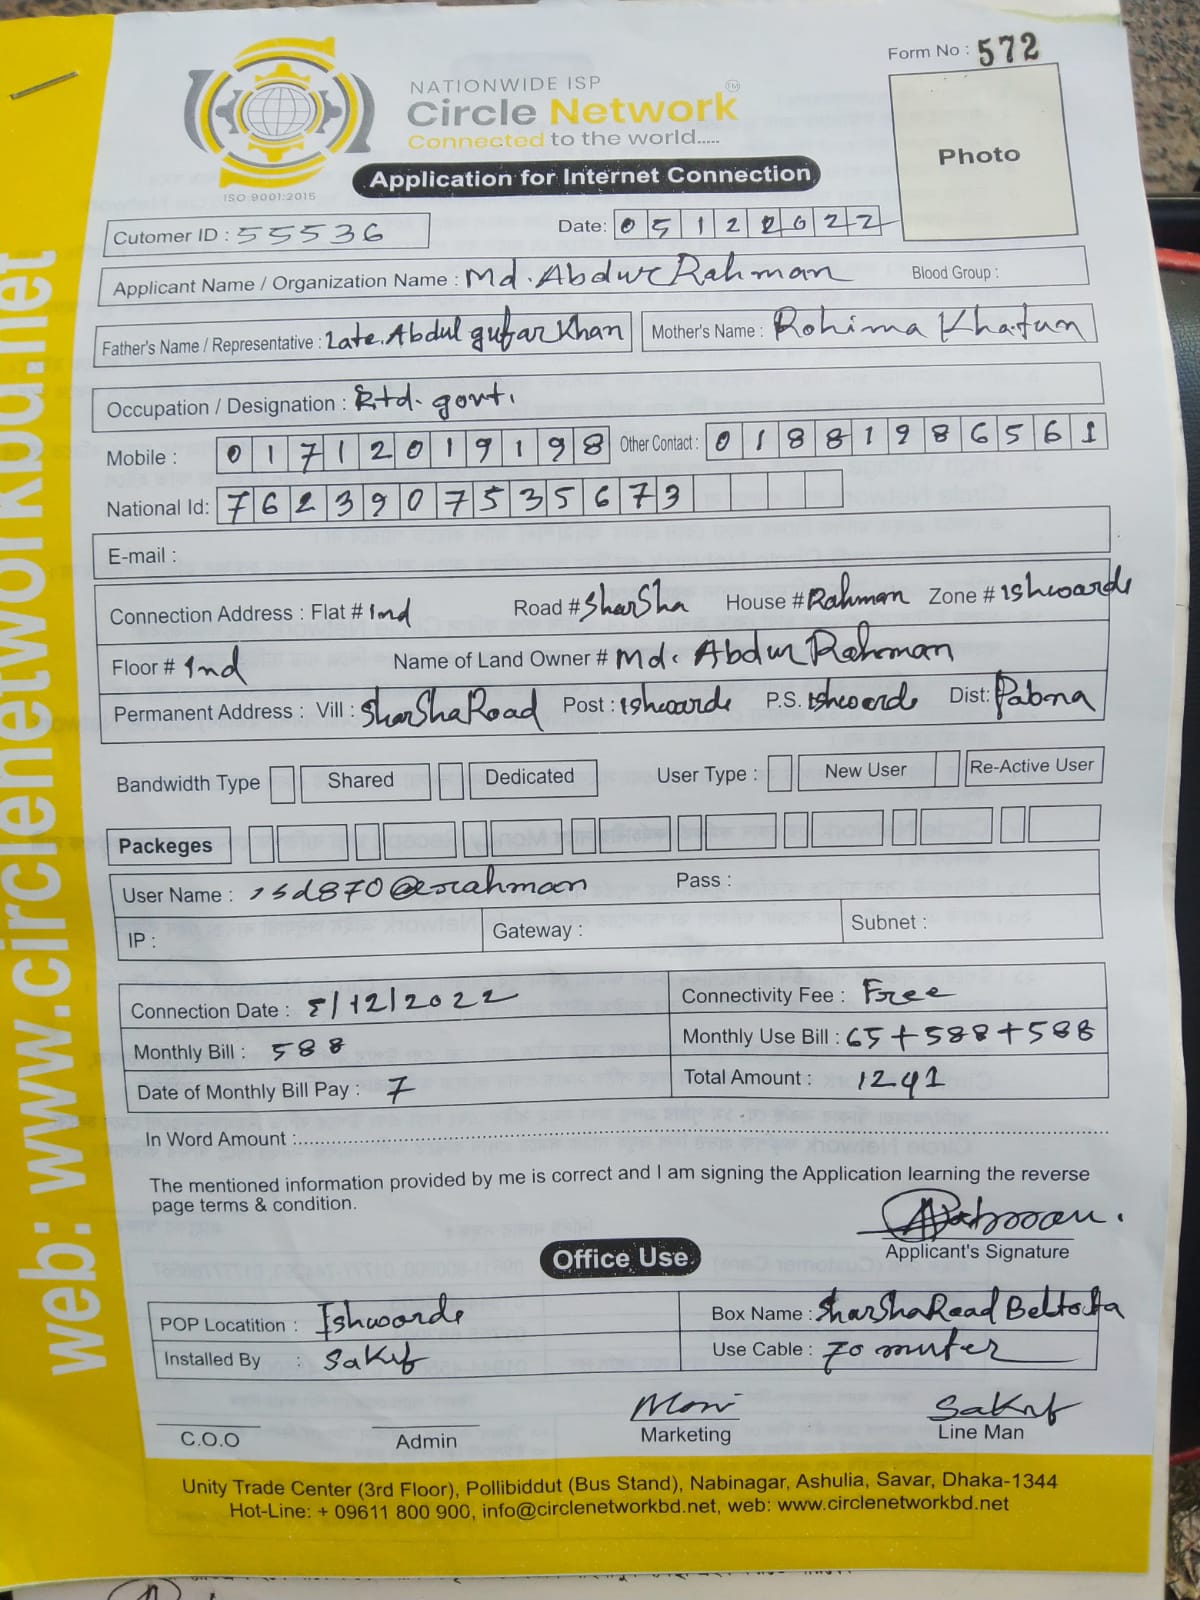 Form No : 572
NATIONWIDE ISP
Circle Network TM
Connected to the world.....
ISO 9001:2015
Application for Internet Connection
Photo
Cutomer ID : 55536
Date: 05122022
Applicant Name / Organization Name : Md. Abdur Rahman Blood Group :
Father's Name / Representative : Late. Abdul gufar Khan Mother's Name : Rohima Khatun
Occupation / Designation : Rtd. govt.
Mobile : 01712019198 Other Contact : 01881986561
National Id: 7623907535673
E-mail :
Connection Address : Flat # 1nd Road # SharSha House # Rahman Zone # Ishwardi
Floor # 1nd Name of Land Owner # Md. Abdur Rahman
Permanent Address : Vill : SharSha Road Post : Ishwardi P.S. Ishwardi Dist: Pabna
Bandwidth Type Shared Dedicated User Type : New User Re-Active User
Packeges
User Name : isd870@erahman Pass :
IP : Gateway : Subnet :
Connection Date : 5/12/2022 Connectivity Fee : Free
Monthly Bill : 588 Monthly Use Bill : 65+588+588
Date of Monthly Bill Pay : 7 Total Amount : 1241
In Word Amount :
The mentioned information provided by me is correct and I am signing the Application learning the reverse
page terms & condition.
Applicant's Signature
Office Use
POP Locatition : Ishwarde Box Name : SharSha Road Beltota
Installed By : Sakif Use Cable : 70 muter
Moni Sakif
C.O.O Admin Marketing Line Man
Unity Trade Center (3rd Floor), Pollibiddut (Bus Stand), Nabinagar, Ashulia, Savar, Dhaka-1344
Hot-Line: + 09611 800 900, info@circlenetworkbd.net, web: www.circlenetworkbd.net
web: www.circlenetworkbd.net